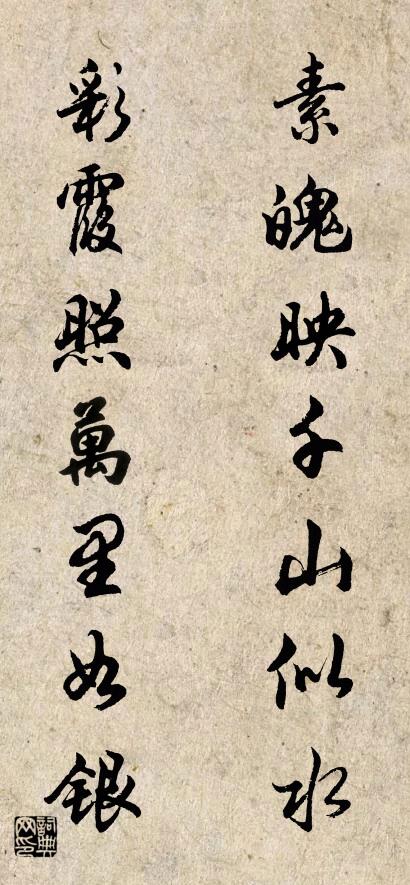 素魄映千山似水
彩霞照萬里如銀
詞典网印